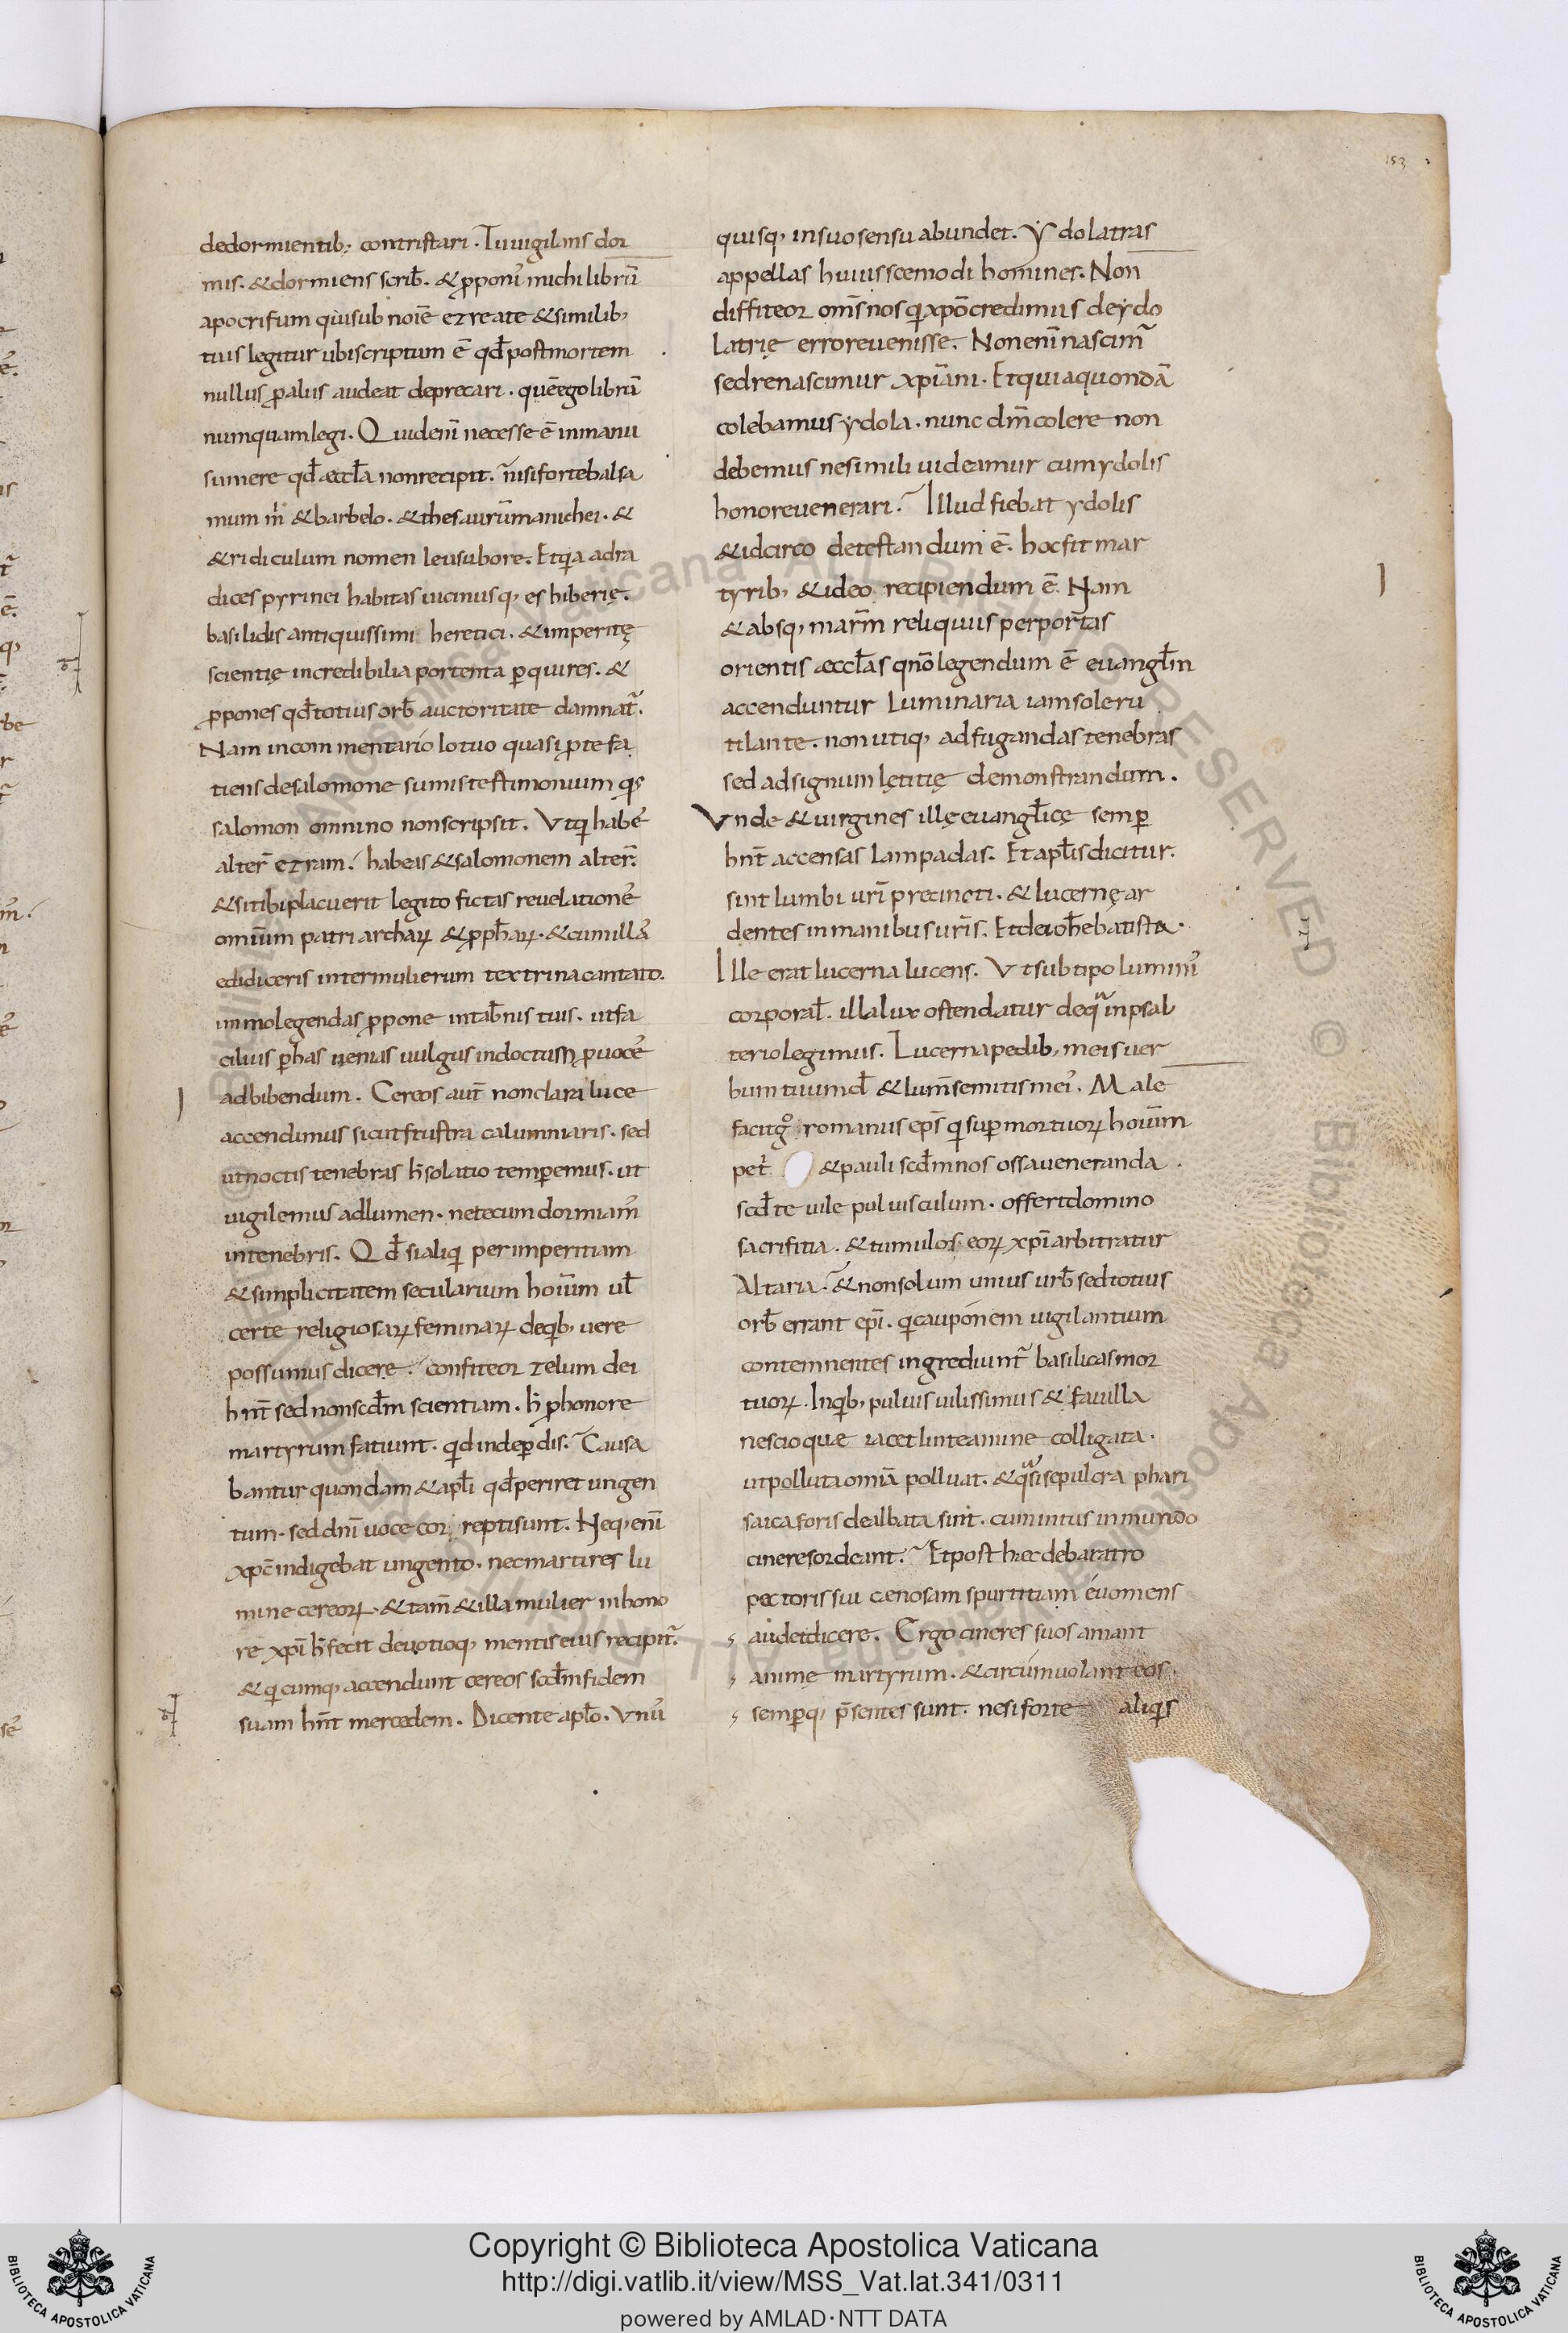 153
dedormientib; contristari. Tuuigilans dor
mis. &dormiens scrib̄. &p̱poni᷒ michi librū
apocrifum qui sub noīe ezreate &similib;
tuis legitur ubiscriptum ē qd̄ postmortem
nullus p̱ alus audeat deprecari. quēego librū
numquam legi. Quidenī necesse ē inmanu
sumere qd̄ æccl̄a nonrecipit. nisi forte balsa
mum m̄ &barbelo. &thesaurūmanichei. &
&ridiculum nomen leusubore. Etqia adra
dices pyrinei habitas uicinusq; es hiberię.
basilidis antiquissimi heretici. &imperitę
scientię incredibilia portenta p̱quires. &
p̱pones qd̄totius orb̄ auctoritate damnat᷑.
Nam incommentario lo tuo quasi p̱te fa
tiens desalomone sumis testimonium qđ
salomon omnino nonscripsit. Vtqi habe᷒
alter̄ ezram. habeas &salomonem alter̄.
&sitibi placuerit legito fictas reuelatione᷒
omīum patriarcharꝝ &p̱ph̄arꝝ. &cumilla᷒
edidiceris intermulierum textrina cantato.
immolegendas p̱pone intab̄nis tuis. utfa
cilius p̱ has nenias uulgus indoctum p̱uoce᷒
adbibendum. Cereos aut̄ nonclara luce
accendimus sicut frustra calumniaris. sed
utnoctis tenebras h̄ solatio temp̱emus. ut
uigilemus adlumen. netecum dormiam᷒
intenebris. Qd̄ si aliqi per imperitiam
&simplicitatem secularium hoīum ul̄
certe religiosarꝝ feminarꝝ deqib; uere
possumus dicere. confiteor zelum dei
hnt̄ sed nonscd̄m scientiam. h̄ p̱ honore
martyrum fatiunt. qid inde p̱dis. Causa
bantur quondam &apl̄i qd̄ periret ungen
tum. sed dnī uoce cor reptisunt. Neq; enī
xp̄c indigebat ungento. nec martires lu
mine cereorꝝ. &tam̄ &illa mulier in hono
re xp̄i h̄ fecit deuotioq; mentis eius recipit᷑.
&qicumq; accendunt cereos scd̄m fidem
suam hn̄t mercedem. Dicente apl̄o. Vnu᷒
quisq; insuo sensu abundet. Ydolatras
appellas huiuisscemodi homines. Non
diffiteor om̄s nos qi xp̄o credimus deydo
latrię errore uenisse. Nonenī nascim᷑
sedrenascimur xp̄iani. Etquia quondā
colebamus ydola. nunc dm̄ colere non
debemus nesimili uideamur cum ydolis
honore uenerari. Illud fiebat ydolis
&idcirco detestandum ē. hoc fit mar
tyrib; &ideo recipiendum ē. Nam
&absq; marm̄ reliquiis perportas
orientis æccl̄as qn̄o legendum ē euangl̄m
accenduntur luminaria iam sole ru
tilante. non utiq; ad fugandas tenebras
sed adsignum lętitię demonstrandum.
Vnde &uirgines illę euangl̄icę semp̱
hn̄t accensas lampadas. Et apl̄is dicitur.
sint lumbi urī precincti. &lucernę ar
dentes in manibus urīs. Etdeioh̄e batista.
Ille erat lucerna lucens. Vt sub tipo lumini᷒
corporal̄. illa lux ostendatur deqa inpsal
terio legimus. Lucerna pedib; meis uer
bum tuum d̄ &lum̄ semitis mei᷒. Male
facitgͦ romanus ep̄s qi sup̱ mortuorꝝ hoīum
pet̄ &pauli scd̄m nos ossa ueneranda.
scd̄ te uile puluisculum. offertdomino
sacrifitia. &tumulos eorꝝ xp̄i arbitratur
Altaria. &nonsolum unius urb̄ sed totius
orb̄ errant ep̄i. qi cauponem uigilantium
contemnentes ingrediunt᷑ basilicas mor
tuorꝝ. Inqib; puluis uilissimus &fauilla
nescio quæ iacet linteamine colligata.
ut polluta omīa polluat. &qasi sepulcra phari
saica foris dealbata sint. cum intus inmundo
cinere sordeant. Etpost hæc debaratro
pectoris sui cenosam spurtitiam euomens
audetdicere. Ergo cineres suos amant
animę martyrum. &circumuolant eos.
semp̱q; p̄sentes sunt. nesi forte aliqis
Copyright © Biblioteca Apostolica Vaticana
http://digi.vatlib.it/view/MSS_Vat.lat.341/0311
powered by AMLAD·NTT DATA